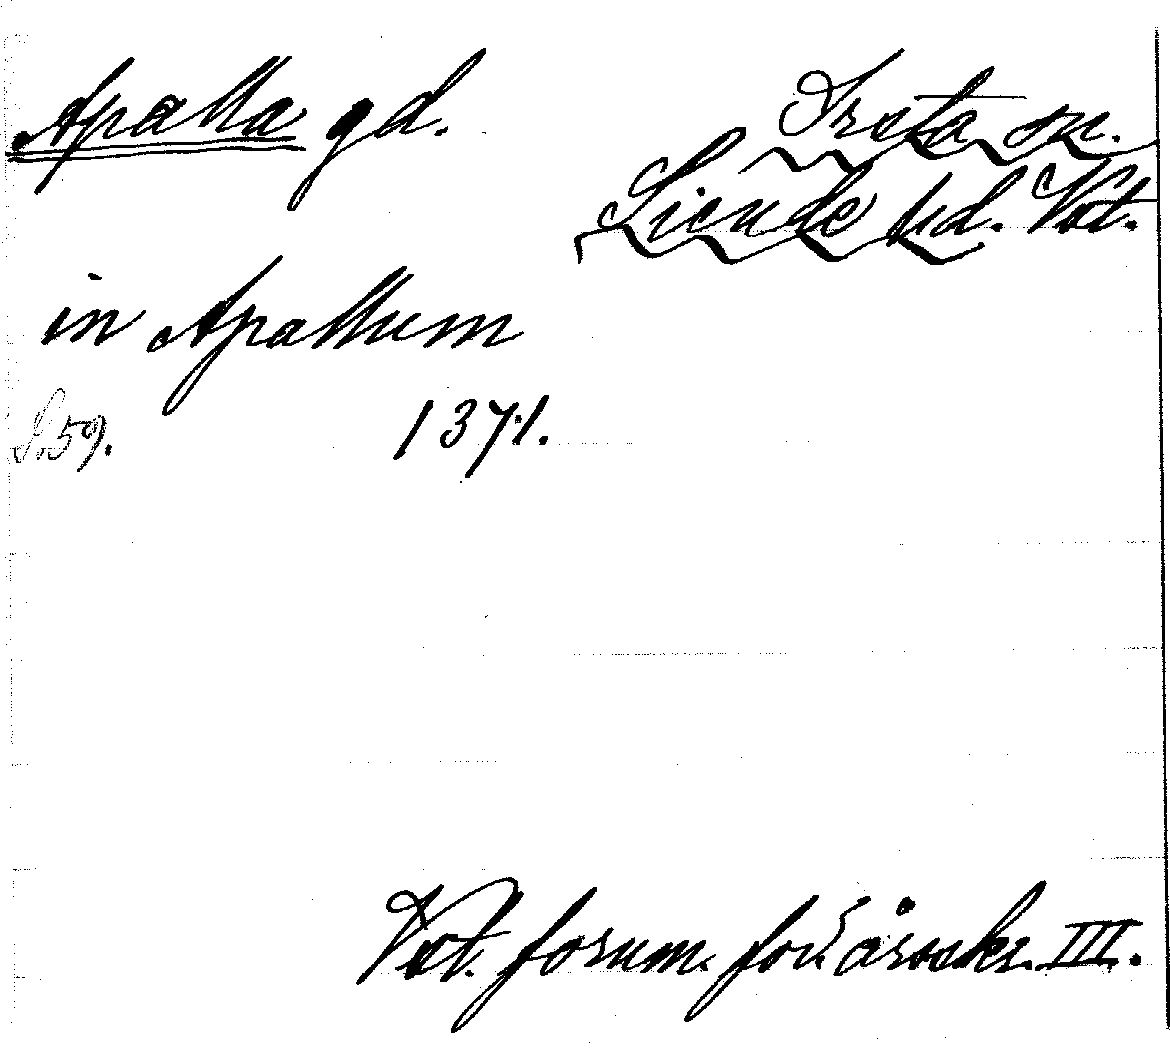 Apalla gd. Irsta sn.
Siende hd. Vst.
in Apallum
S.59. 1371.
Vst. fornm. för. årsskr. III.